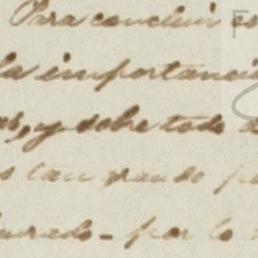 Para concluir es
la importanci
as, y sobre todo a
s tan grande p
urado - por lo